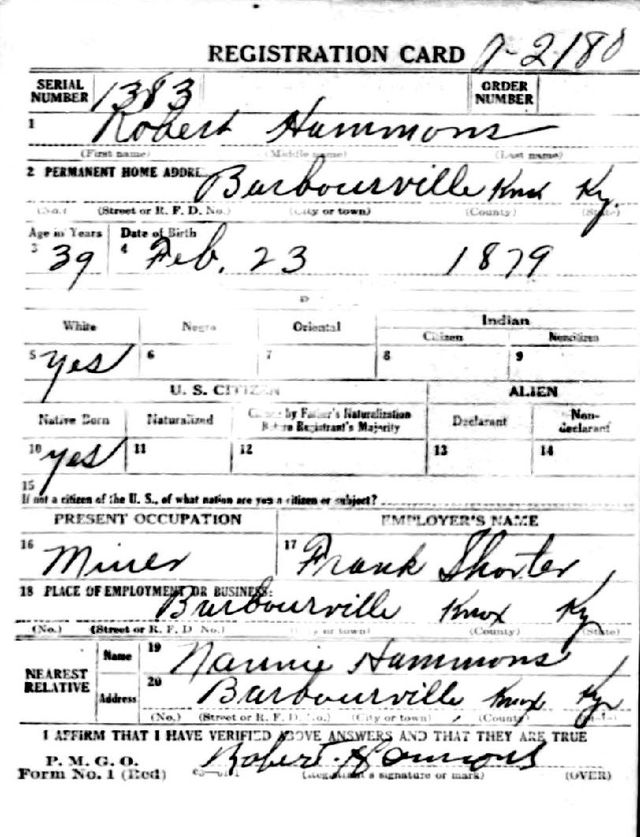 REGISTRATION CARD
SERIAL NUMBER 1383 ORDER NUMBER
1 Robert Hammons
(First name) (Middle name) (Last name)
2 PERMANENT HOME ADDRE Barbourville Knox Ky.
(No.) (Street or R. F. D. No.) (City or town) (County) (State)
Age in Years Date of Birth
3 39 4 Feb. 23 1879
White Negro Oriental Indian
Citizen Noncitizen
5 yes 6 7 8 9
U. S. CITIZEN ALIEN
Native Born Naturalized Citizen by Father's Naturalization Before Registrant's Majority Declarant Non-declarant
10 yes 11 12 13 14
15
If not a citizen of the U. S., of what nation are you a citizen or subject?
PRESENT OCCUPATION EMPLOYER'S NAME
16 Miner 17 Frank Shorter
18 PLACE OF EMPLOYMENT OR BUSINESS:
Barbourville Knox Ky
(No.) (Street or R. F. D. No.) (City or town) (County) (State)
NEAREST RELATIVE
Name 19 Nannie Hammons
Address 20 Barbourville Knox Ky
(No.) (Street or R. F. D. No.) (City or town) (County)
I AFFIRM THAT I HAVE VERIFIED ABOVE ANSWERS AND THAT THEY ARE TRUE
P. M. G. O.
Form No. 1 (Red) Robert Hammons
(Registrant's signature or mark) (OVER)